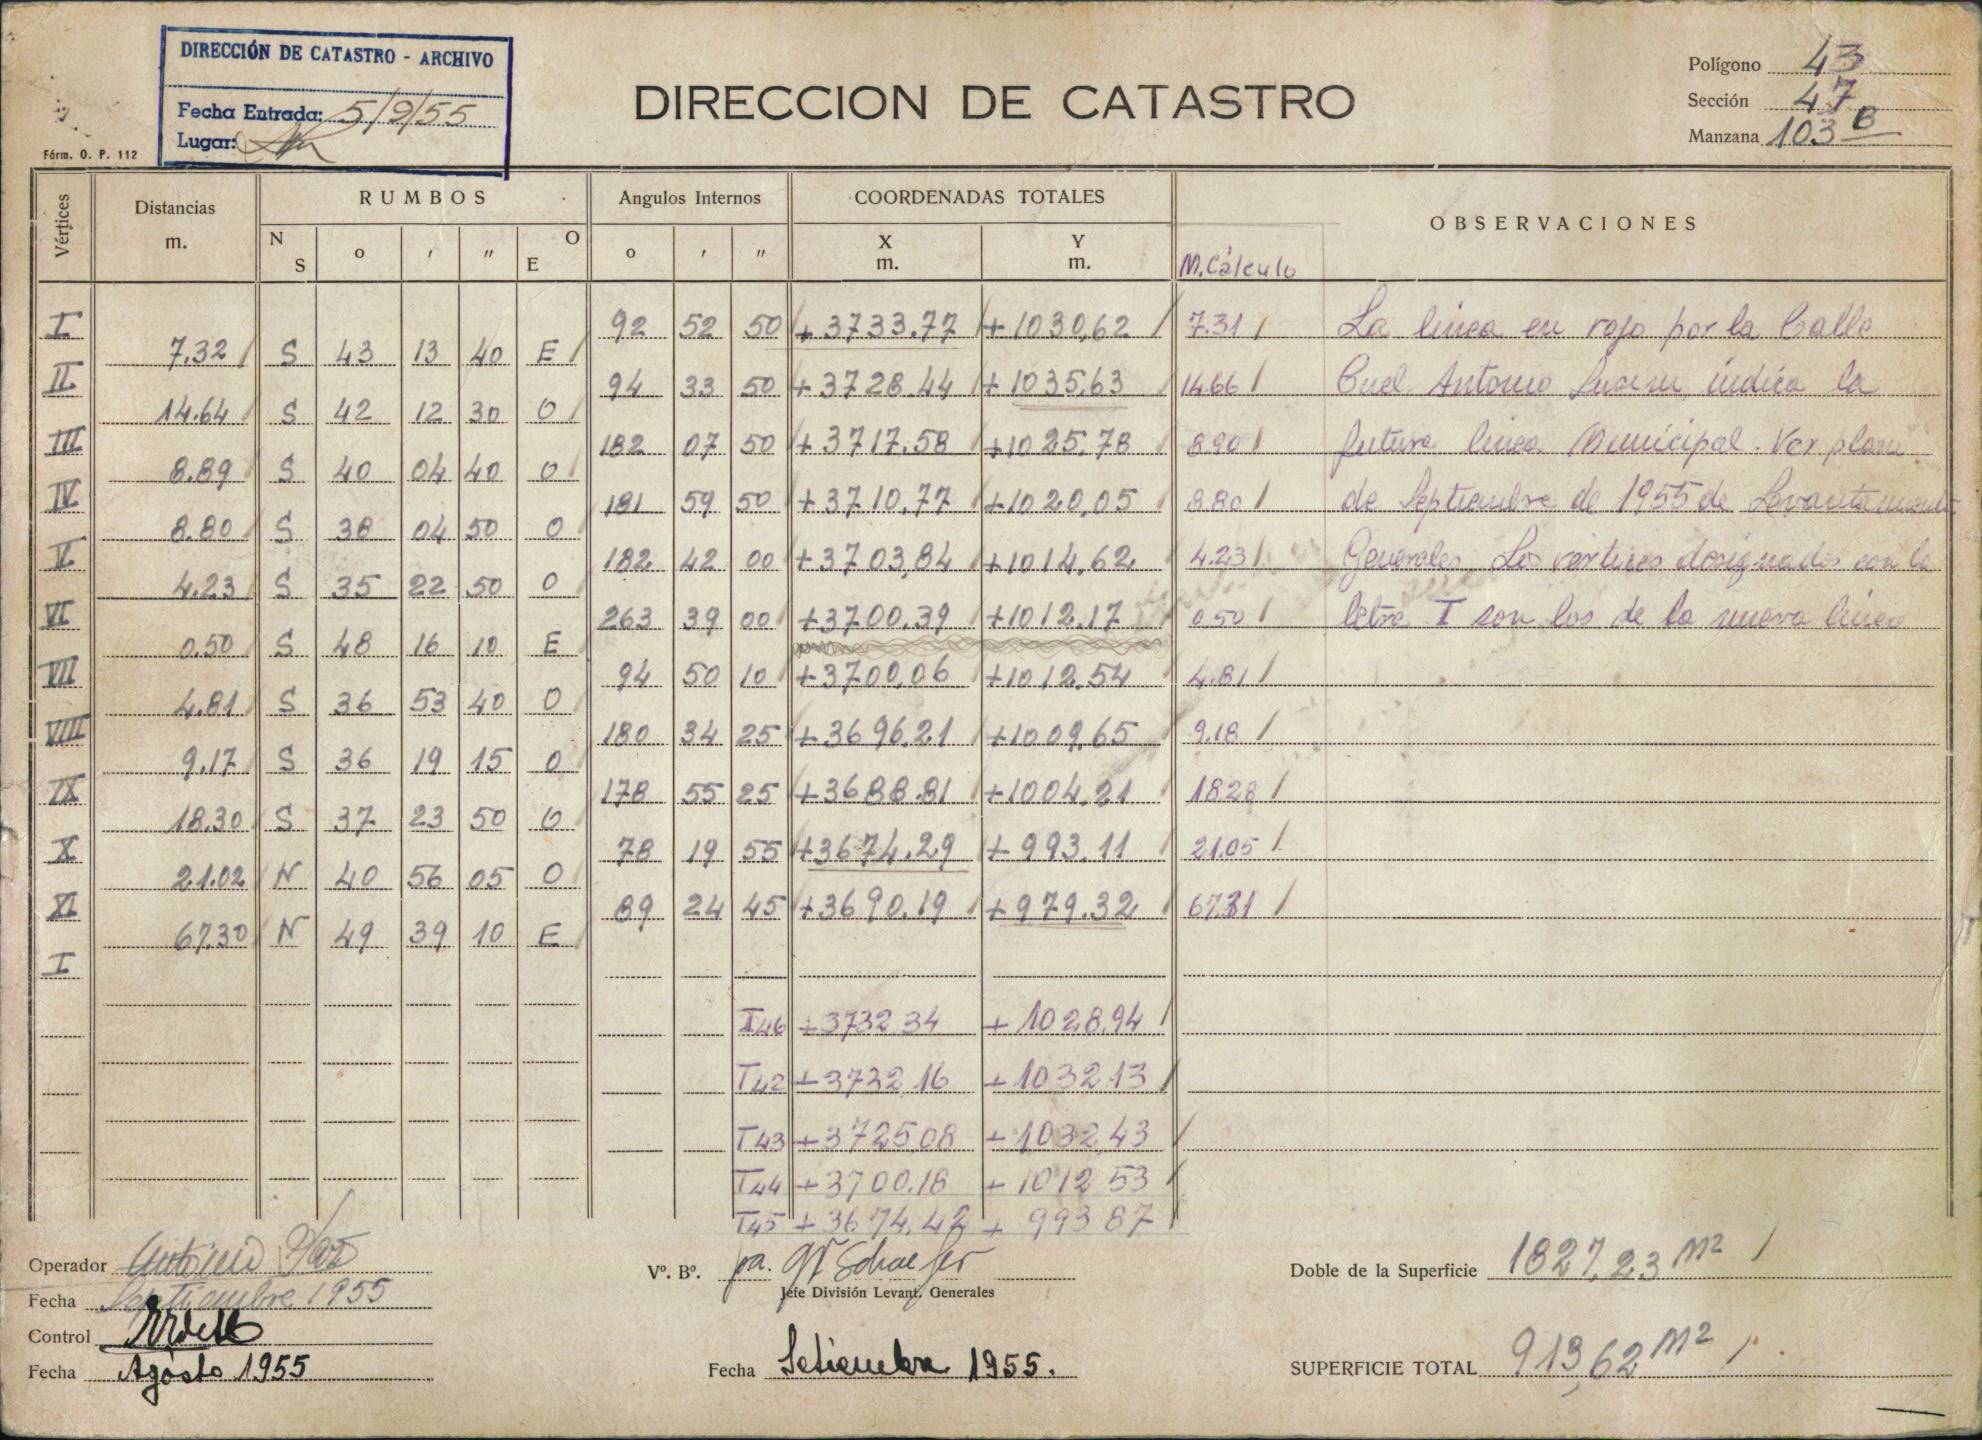 DIRECCIÓN DE CATASTRO - ARCHIVO
Fecha Entrada: 5/9/55
Lugar:
Fórm. O. P. 112
DIRECCION DE CATASTRO
Polígono 43
Sección 47
Manzana 103 B
Vértices Distancias m. RUMBOS Angulos Internos COORDENADAS TOTALES OBSERVACIONES
N S o ' " O E o ' " X m. Y m. M. Cálculo
I 92 52 50 + 3733.77 + 1030,62 7.31 La linea en rojo por la Calle
7.32 S 43 13 40 E
II 94 33 50 + 3728.44 + 1035,63 14.66 Cnel. Antonio indica la
14.64 S 42 12 30 O
III 182 07 50 + 3717.58 + 1025.78 8.90 futura linea Municipal. Ver plano
8.89 S 40 04 40 O
IV 181 59 50 + 3710.77 + 1020,05 8.80 de Septiembre de 1955 de Levantamientos
8.80 S 38 04 50 O
V 182 42 00 + 3703,84 + 1014,62 4.23 Generales. Los vertices designados con la
4.23 S 35 22 50 O
VI 263 39 00 + 3700.39 + 1012.17 0.50 letra T son los de la nueva linea
0.50 S 48 16 10 E
VII 94 50 10 + 3700,06 + 1012.54 4.81
4.81 S 36 53 40 O
VIII 180 34 25 + 3696.21 + 1009,65 9.18
9.17 S 36 19 15 O
IX 178 55 25 + 3688.81 + 1004.21 18.28
18.30 S 37 23 50 O
X 78 19 55 + 3674.29 + 993.11 21.05
21.02 N 40 56 05 O
XI 89 24 45 + 3690.19 + 979.32 67.31
67.30 N 49 39 10 E
I
T46 + 3732 34 + 1028.94
T42 + 3732 16 + 1032 13
T43 + 3725,08 + 1032,43
T44 + 3700.18 + 1012 53
T45 + 3674.42 + 993 87
Operador Antonio
Fecha Septiembre 1955
Control
Fecha Agosto 1955
Vº. Bº. pa.
Jefe División Levant. Generales
Fecha Setiembre 1955.
Doble de la Superficie 1827,23 m2
SUPERFICIE TOTAL 913,62 m2